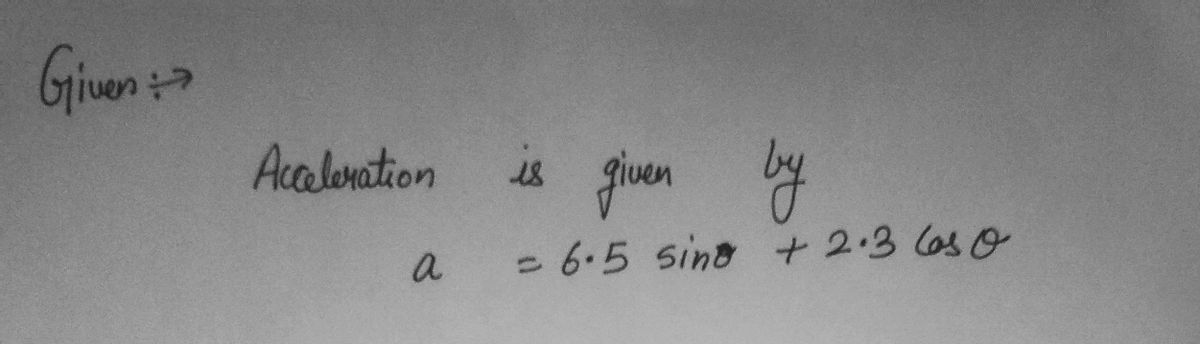 Given :→
Acceleration is given by
a = 6.5 sinθ + 2.3 Cos θ